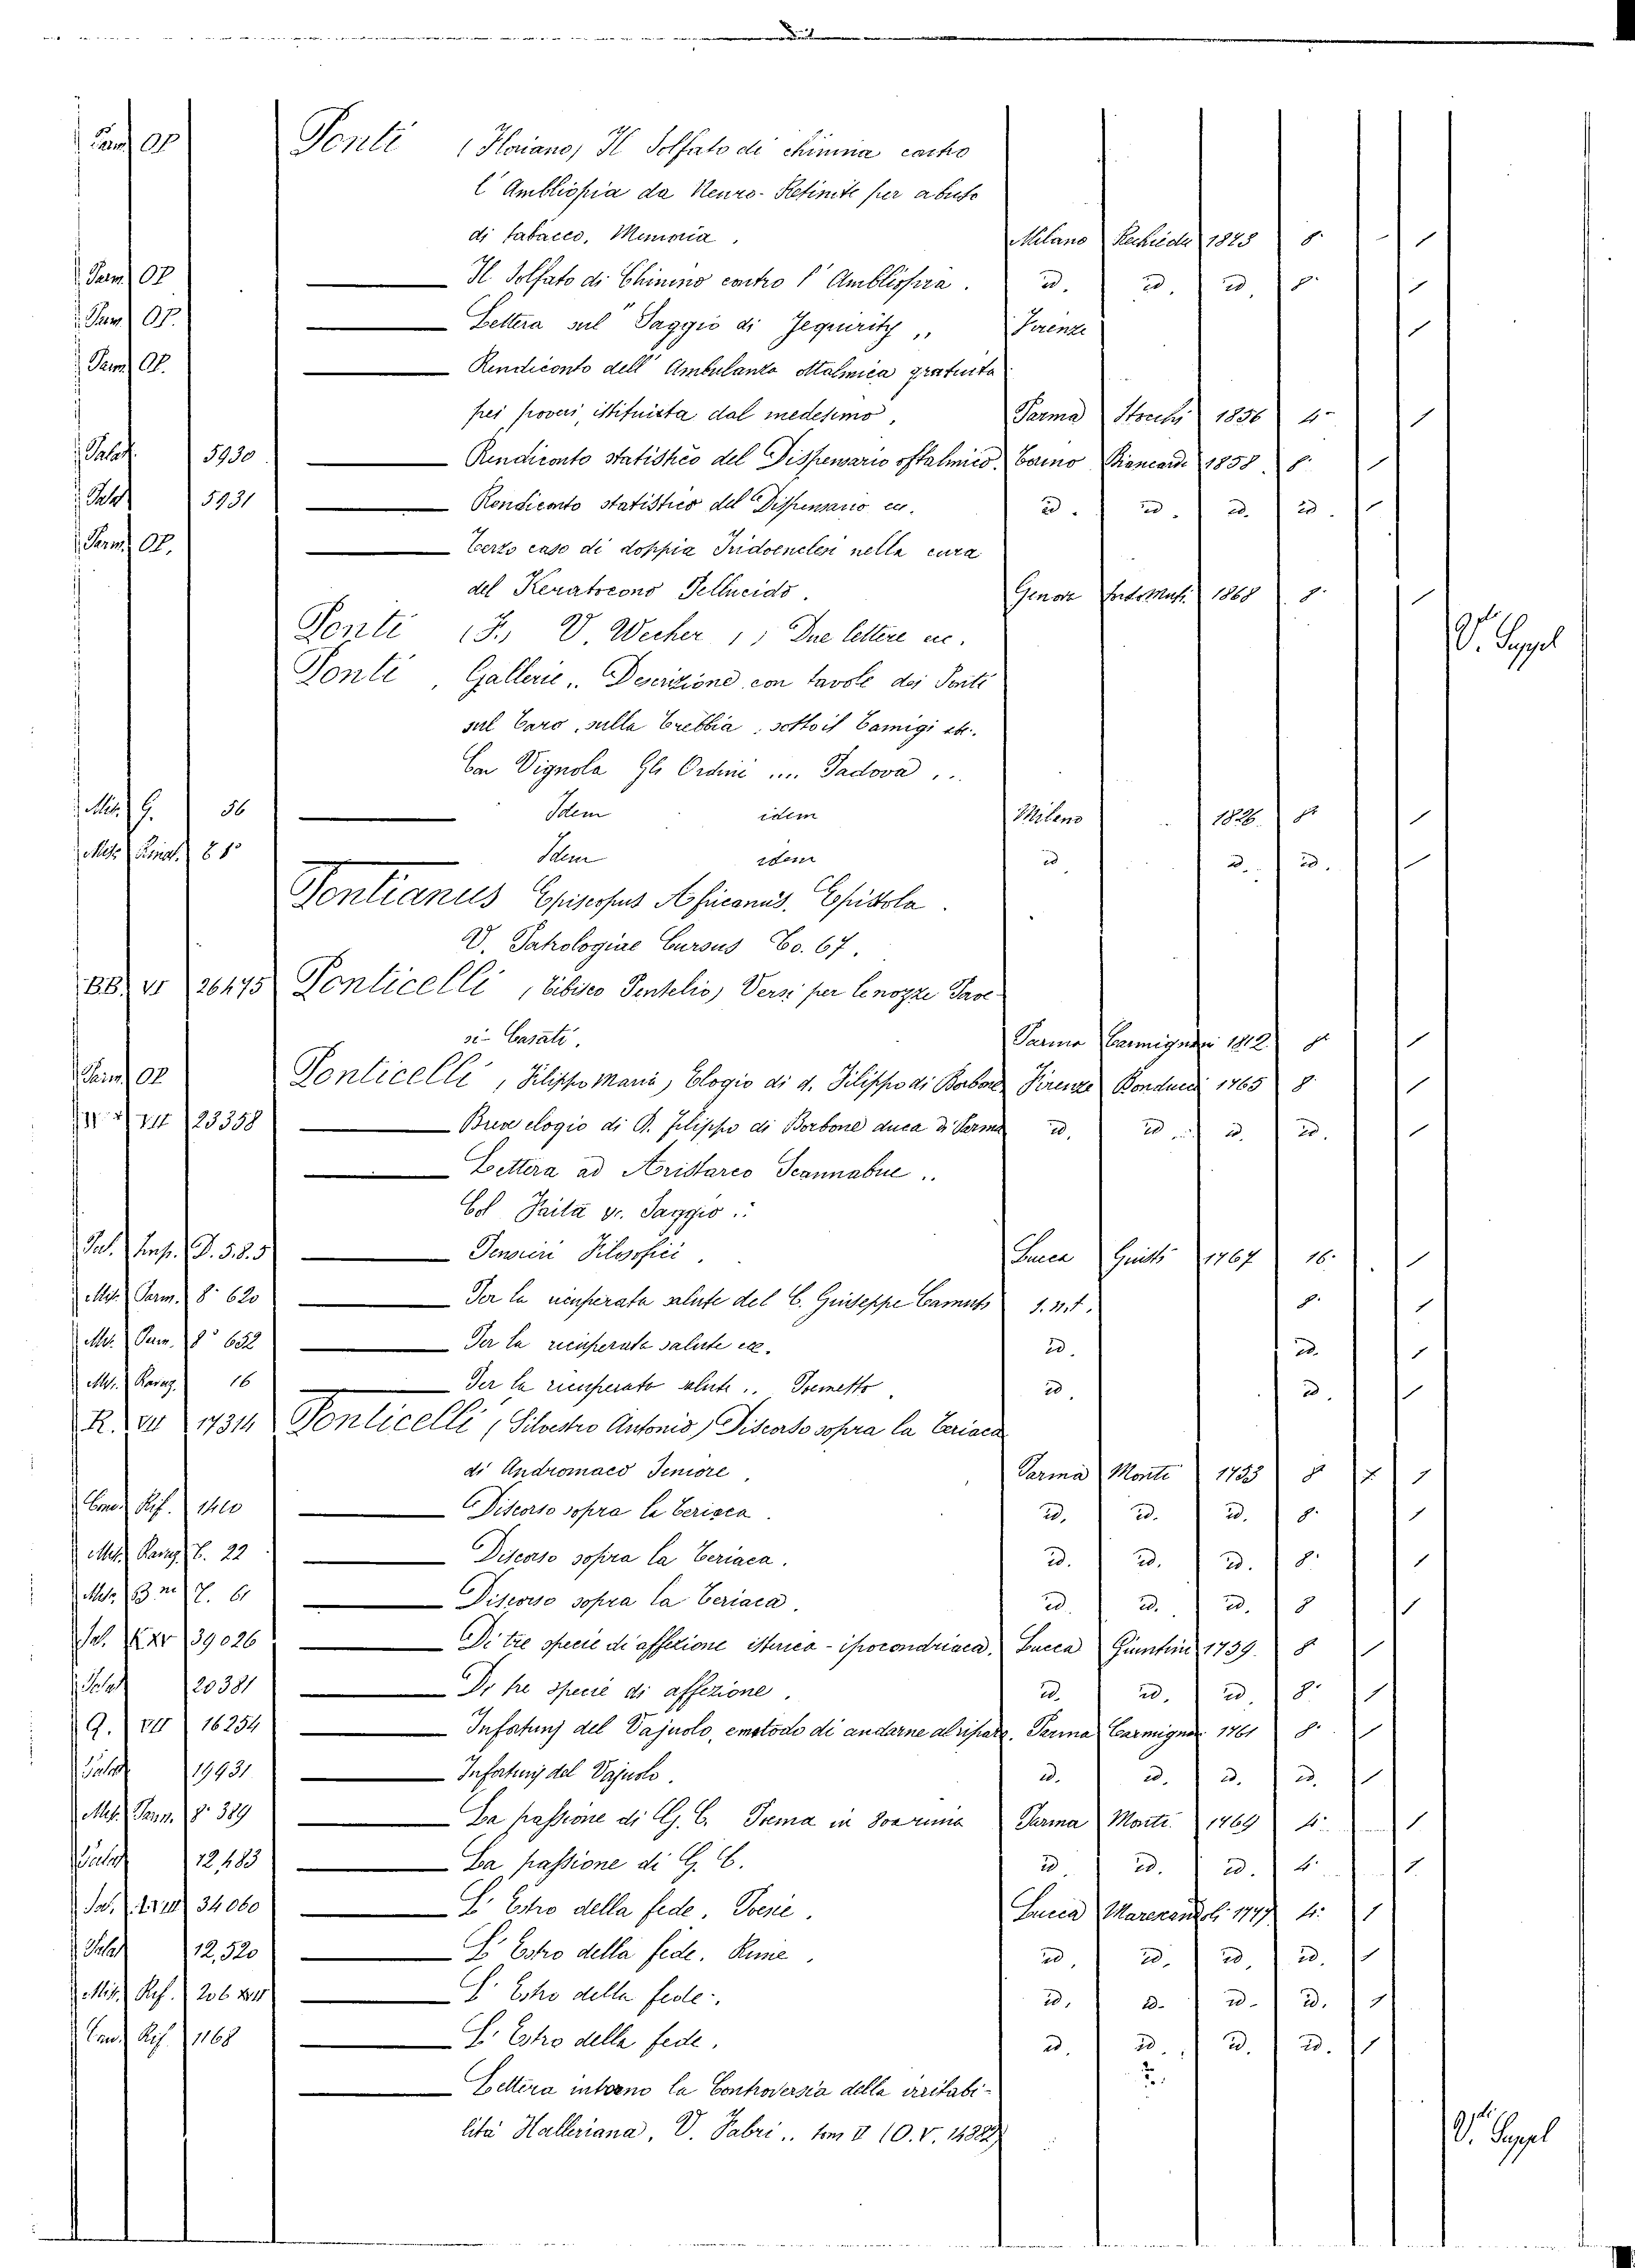 Parm. OP. Ponti (Floriano) Il Solfato di chinina contro
l'Ambliopia da Neuro-Retinite per abuso
di tabacco, Memoria. Milano Rechiedei 1878 8° 1
Parm. OP. Il Solfato di Chinino contro l'Ambliopia. id. id. id. 8° 1
Parm. OP. Lettera sul "Saggio di Jequirity" Firenze 1
Parm. OP. Rendiconto dell'Ambulanza ottalmica gratuita
pei poveri, istituita dal medesimo, Parma 1856 4° 1
Palat. 5930 Rendiconto statistico del Dispensario oftalmico. Torino Biancardi 1858 8° 1
Palat. 5931 Rendiconto statistico del Dispensario ec. id. id. id. id. 1
Parm. OP. Terzo caso di doppia Iridoenclesi nella cura
del Keratocono Pellucido. Genova 1868 8° 1
Ponti (F.) V. Wecher, Due lettere ec. V. Suppl
Ponti, Gallerie,. Descrizione con tavole dei Ponti
sul Taro, sulla Trebbia, sotto il Tamigi etc.
Con Vignola Gli Ordini .... Padova ..
Mic. G. 56 Idem idem Milano 1826. 8° 1
81 Idem idem id id. id. 1
Pontianus Episcopus Africanus. Epistola.
V. Patrologiae Cursus To. 67.
BB. VI 26475 Ponticelli, (Tibisco Pentelio) Versi per le nozze
si-Casati. Parma Carmignani 1812. 8° 1
Parm. OP Ponticelli, (Filippo Maria) Elogio di d. Filippo di Borbone Firenze Bonducci 1765 8 1
VII 23358 Breve elogio di D. Filippo di Borbone duca di Parma id. id. id. id. 1
Lettera ad Aristarco Scannabue..
Col Paità v. Saggio..
Pal. Imp. D. 585 Pensieri Filosofici. Lucca Giusti 1767 16° 1
Mis. Parm. 8° 620 Per la ricuperata salute del C. Giuseppe Camuti s.n.t. 8° 1
Mis. Parm. 8° 652 Per la ricuperata salute ec. id. id. 1
Mis. 16 Per la ricuperata salute.. Poemetto. id. id. 1
R. VII 17314 Ponticelli, (Silvestro Antonio) Discorso sopra la Teriaca
di Andromaco Seniore. Parma Monti 1733 8 1
Rif. 1410 Discorso sopra la Teriaca. id. id. id. 8° 1
Mis. T. 22 Discorso sopra la Teriaca. id. id. id. 8° 1
Mis. B. T. 61 Discorso sopra la Teriaca. id. id. id. 8 1
39026 Di tre specie di affezione isterica-ipocondriaca. Lucca Giuntini 1739. 8 1
Palat 20381 Di tre specie di affezione. id. id. id. 8° 1
G. VII 16254 Infortunj del Vajuolo, e metodo di andarne al riparo. Parma Carmignani 1761 8° 1
Palat 19931 Infortunj del Vajuolo. id. id. id. id. 1
Mis. Parm. 8° 389 La passione di G. C. Poema in Parma Monti 1769 4° 1
Palat 12,483 La passione di G. C. id id. id. 4° 1
34060 L'Estro della fede. Poesie. Lucca Marescandoli 1747 4° 1
Palat 12,520 L'Estro della fede. Rime. id. id. id. id. 1
Mis. Rif. 206 L'Estro della fede. id. id. id. id. 1
Rif. 1168 L'Estro della fede. id. id. id. id. 1
Lettera intorno la Controversia della irritabi-
lità Halleriana, V. Fabri .. tom II (O. V. 1482) V. Suppl